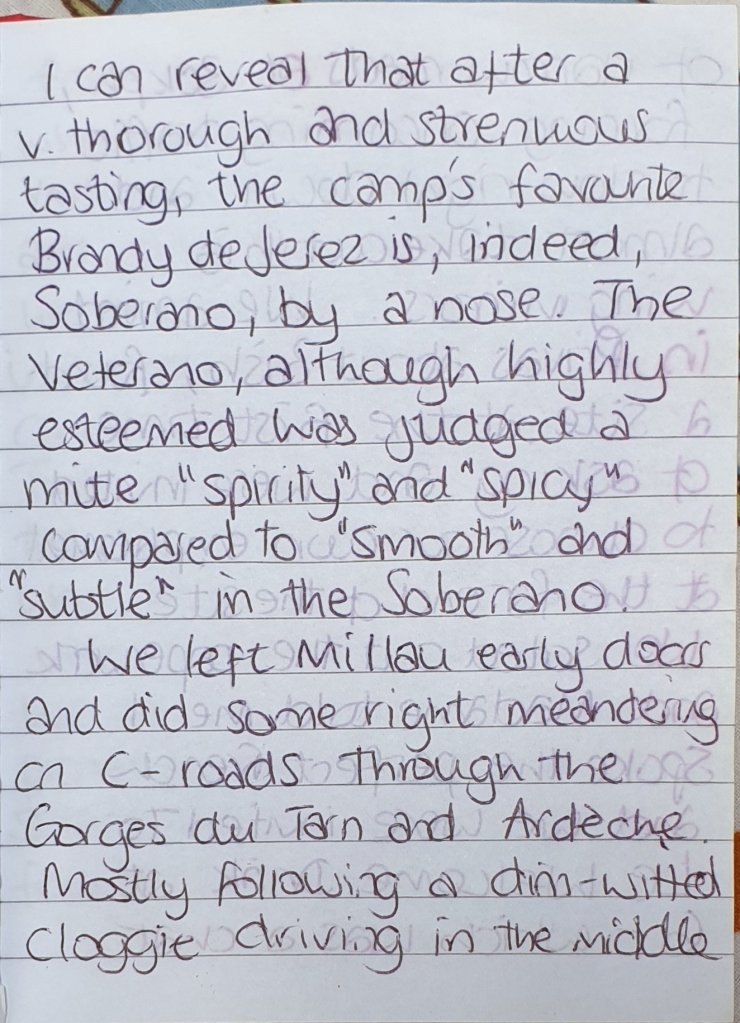 I can reveal that after a
v. thorough and strenuous
tasting, the camp's favourite
Brandy de Jerez is, indeed,
Soberano, by a nose. The
Veterano, although highly
esteemed was judged a
mite "spirity" and "spicy"
compared to "smooth" and
"subtle" in the Soberano.
We left Millau early doors
and did some right meandering
on C-roads through the
Gorges du Tarn and Ardèche.
Mostly following a dim-witted
Cloggie driving in the middle